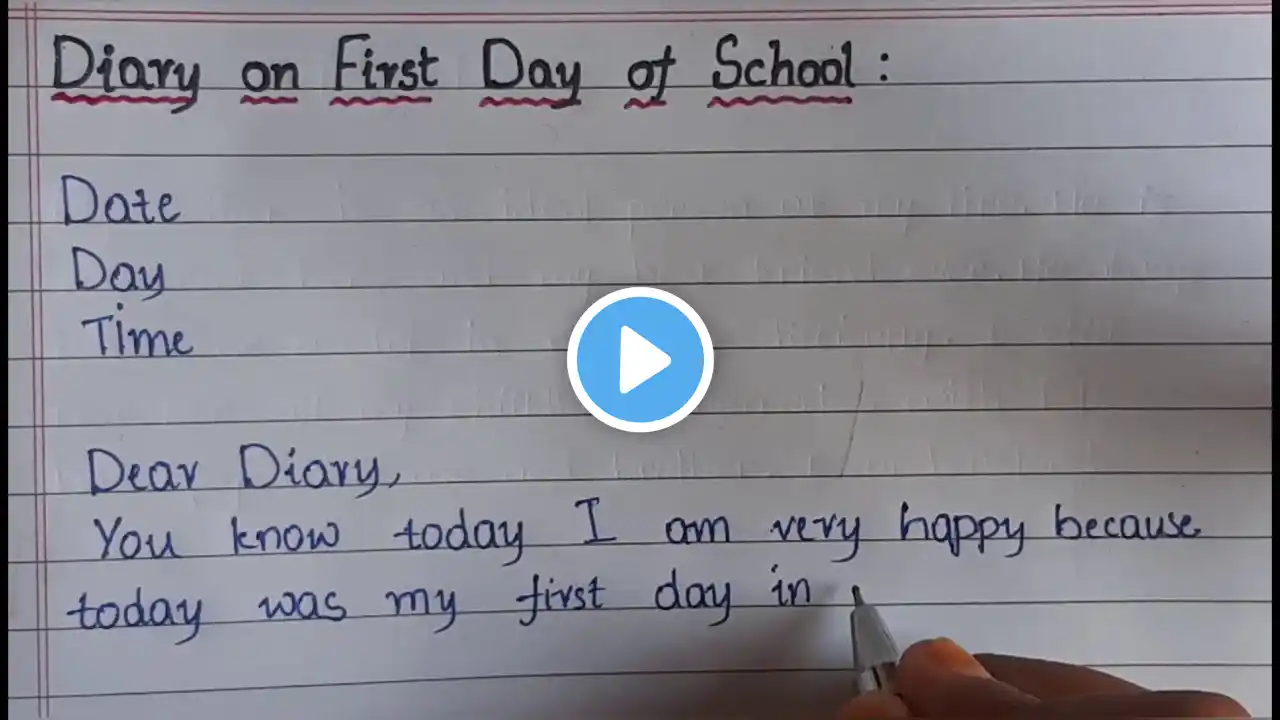 Diary on First Day of School :
Date
Day
Time
Dear Diary,
You know today I am very happy because
today was my first day in